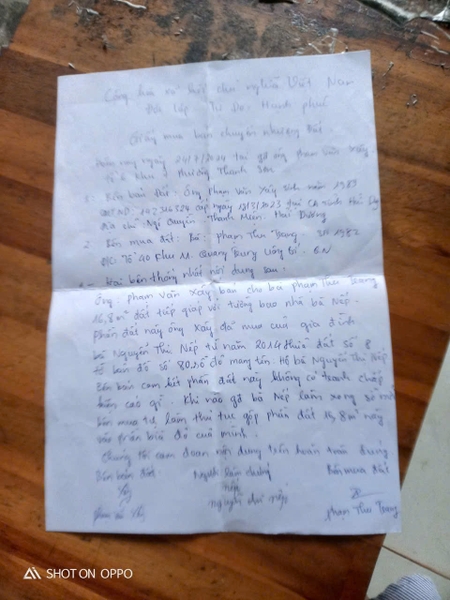 Cộng hòa xã hội chủ nghĩa Việt Nam
Độc lập Tự do Hạnh phúc
Giấy mua bán chuyển nhượng đất
Hôm nay ngày tại gđ ông Phạm Văn Xây
phường Thanh Sơn
1. Bên bán đất: Ông Phạm Văn Xây sinh năm
CMND: cấp ngày tại CA tỉnh Hải
địa chỉ: Thanh Miện. Hải Dương
2. Bên mua đất: Bà: Phạm Thu Trang. SN 1982
Đ/C: Tổ 40 Khu 11. Quang Trung Uông Bí. QN
Hai bên thống nhất nội dung sau:
Ông: Phạm Văn Xây bán cho bà Phạm Thu Trang
16,8 m² đất tiếp giáp với tường bao nhà bà Nếp.
Phần đất này ông Xây đã mua của gia đình
bà Nguyễn Thị Nếp từ năm 2014 thửa đất số 8
tờ bản đồ số mang tên: Hộ bà Nguyễn Thị Nếp
Bên bán cam kết phần đất này không có tranh chấp
Khi nào gđ bà Nếp làm xong sổ
bên mua tự làm thủ tục gộp phần đất 16,8 m² này
vào bìa đỏ của mình.
Chúng tôi cam đoan nội dung trên hoàn toàn đúng
Bên bán đất Người làm chứng Bên mua đất
Nếp
Nguyễn Thị Nếp Phạm Thu Trang
SHOT ON OPPO